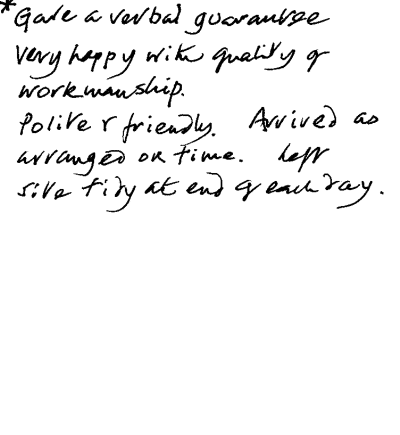 *Gave a verbal guarantee
very happy with quality of
workmanship.
Polite & friendly. Arrived as
arranged on time. Left
site tidy at end of each day.